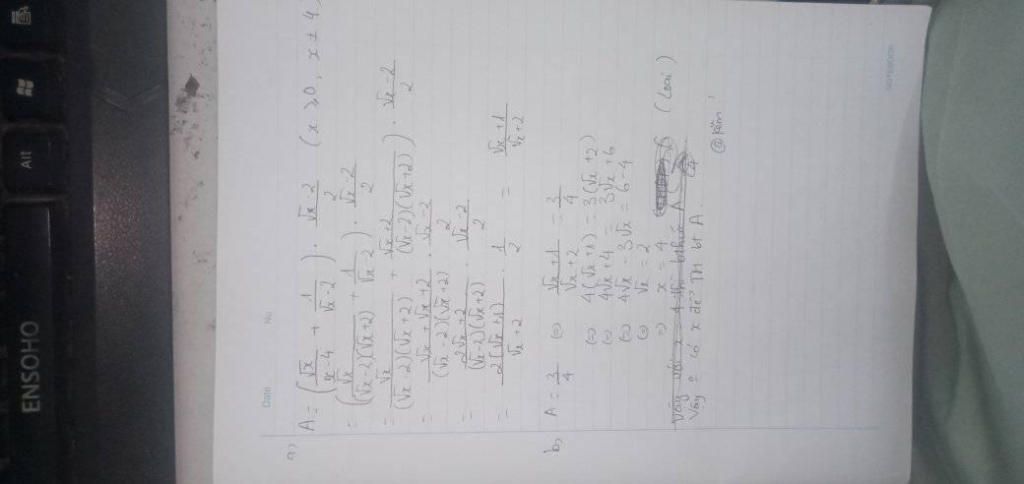 Date No.
a) A = (√x/(x-4) + 1/(√x-2)) . (√x-2)/2 (x ≥ 0, x ≠ 4)
= (√x/((√x-2)(√x+2)) + 1/(√x-2)) . (√x-2)/2
= (√x/((√x-2)(√x+2)) + (√x+2)/((√x-2)(√x+2))) . (√x-2)/2
= (√x+√x+2)/((√x-2)(√x+2)) . (√x-2)/2
= (2√x+2)/((√x-2)(√x+2)) . (√x-2)/2
= 2(√x+1)/(√x+2) . 1/2 = (√x+1)/(√x+2)
b, A = 3/4 (=) (√x+1)/(√x+2) = 3/4
(=) 4(√x+1) = 3(√x+2)
(=) 4√x+4 = 3√x+6
(=) 4√x - 3√x = 6-4
(=) √x = 2
=) x = 4 (loại)
Vậy với x = 4 thì bthức A
Vậy có x để TM bt A.
ENSOHO
Alt